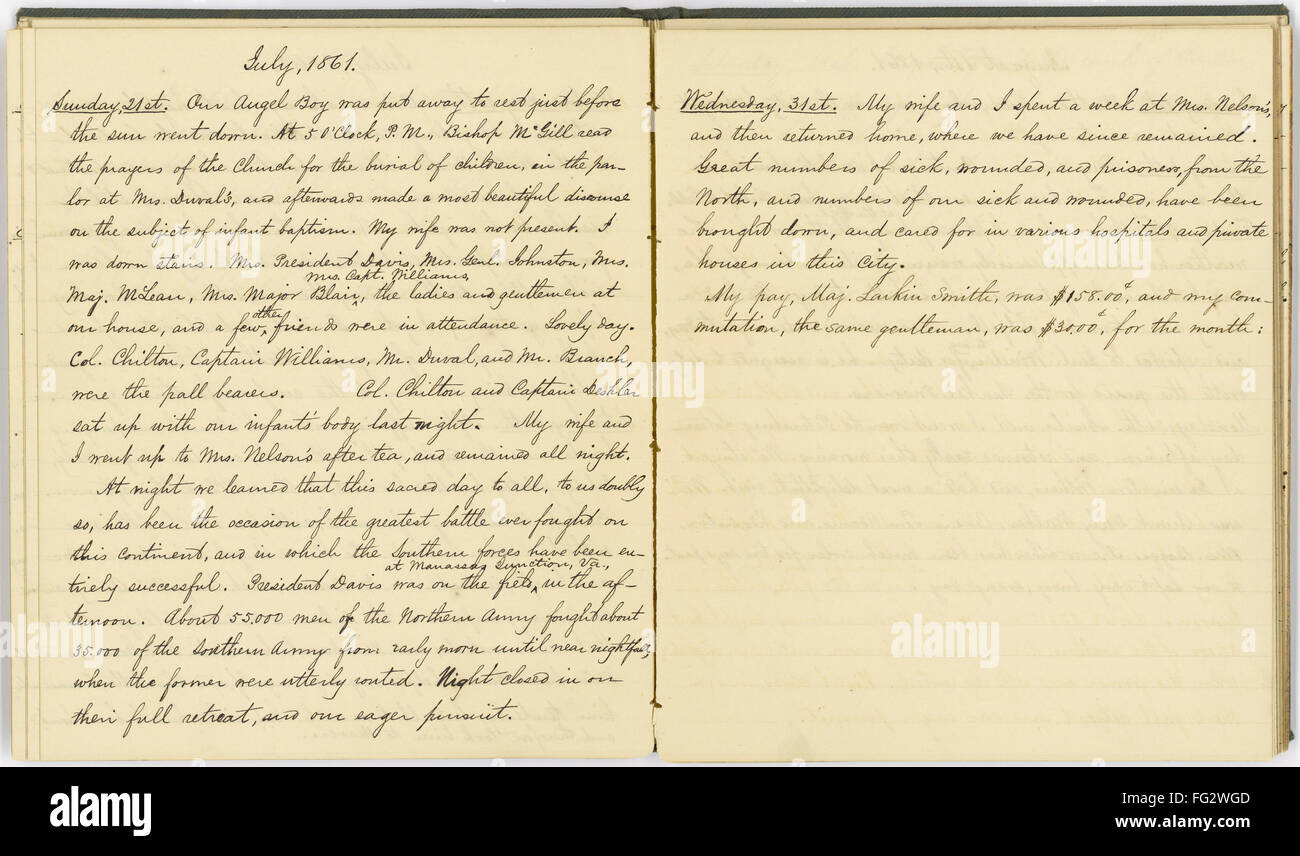 July, 1861.
Sunday, 21st. Our Angel Boy was put away to rest just before
the sun went down. At 5 O'Clock, P.M., Bishop McGill read
the prayers of the Church for the burial of children, in the par-
lor at Mrs. Duval's, and afterwards made a most beautiful discourse
on the subject of infant baptism. My wife was not present. I
was down stairs. Mrs. President Davis, Mrs. Genl. Johnston, Mrs.
Mrs. Capt. Williams,
Maj. McLean, Mrs. Major Blair, ‸ the ladies and gentlemen at
other
our house, and a few ‸ friends were in attendance. Lovely day.
Col. Chilton, Captain Williams, Mr. Duval, and Mr. Branch,
were the pall bearers. Col. Chilton and Captain Deshler
sat up with our infant's body last night. My wife and
I went up to Mrs. Nelson's after tea, and remained all night.
At night we learned that this sacred day to all, to us doubly
so, has been the occasion of the greatest battle ever fought on
this continent, and in which the Southern forces have been en-
at Manassas Junction, Va.,
tirely successful. President Davis was on the field ‸ in the af-
ternoon. About 55.000 men of the Northern Army fought about
35.000 of the Southern Army from early morn until near nightfall,
when the former were utterly routed. Night closed in on
their full retreat, and our eager pursuit.
Wednesday, 31st. My wife and I spent a week at Mrs. Nelson's,
and then returned home, where we have since remained.
Great numbers of sick, wounded, and prisoners, from the
North, and numbers of our sick and wounded, have been
brought down, and cared for in various hospitals and private
houses in this City.
My pay, Maj. Larkin Smith, was $158.00¢, and my com-
mutation, the same gentleman, was $30.00¢, for the month:
alamy
alamy
alamy
a
a
a
a
alamy
Image ID: FG2WGD
www.alamy.com